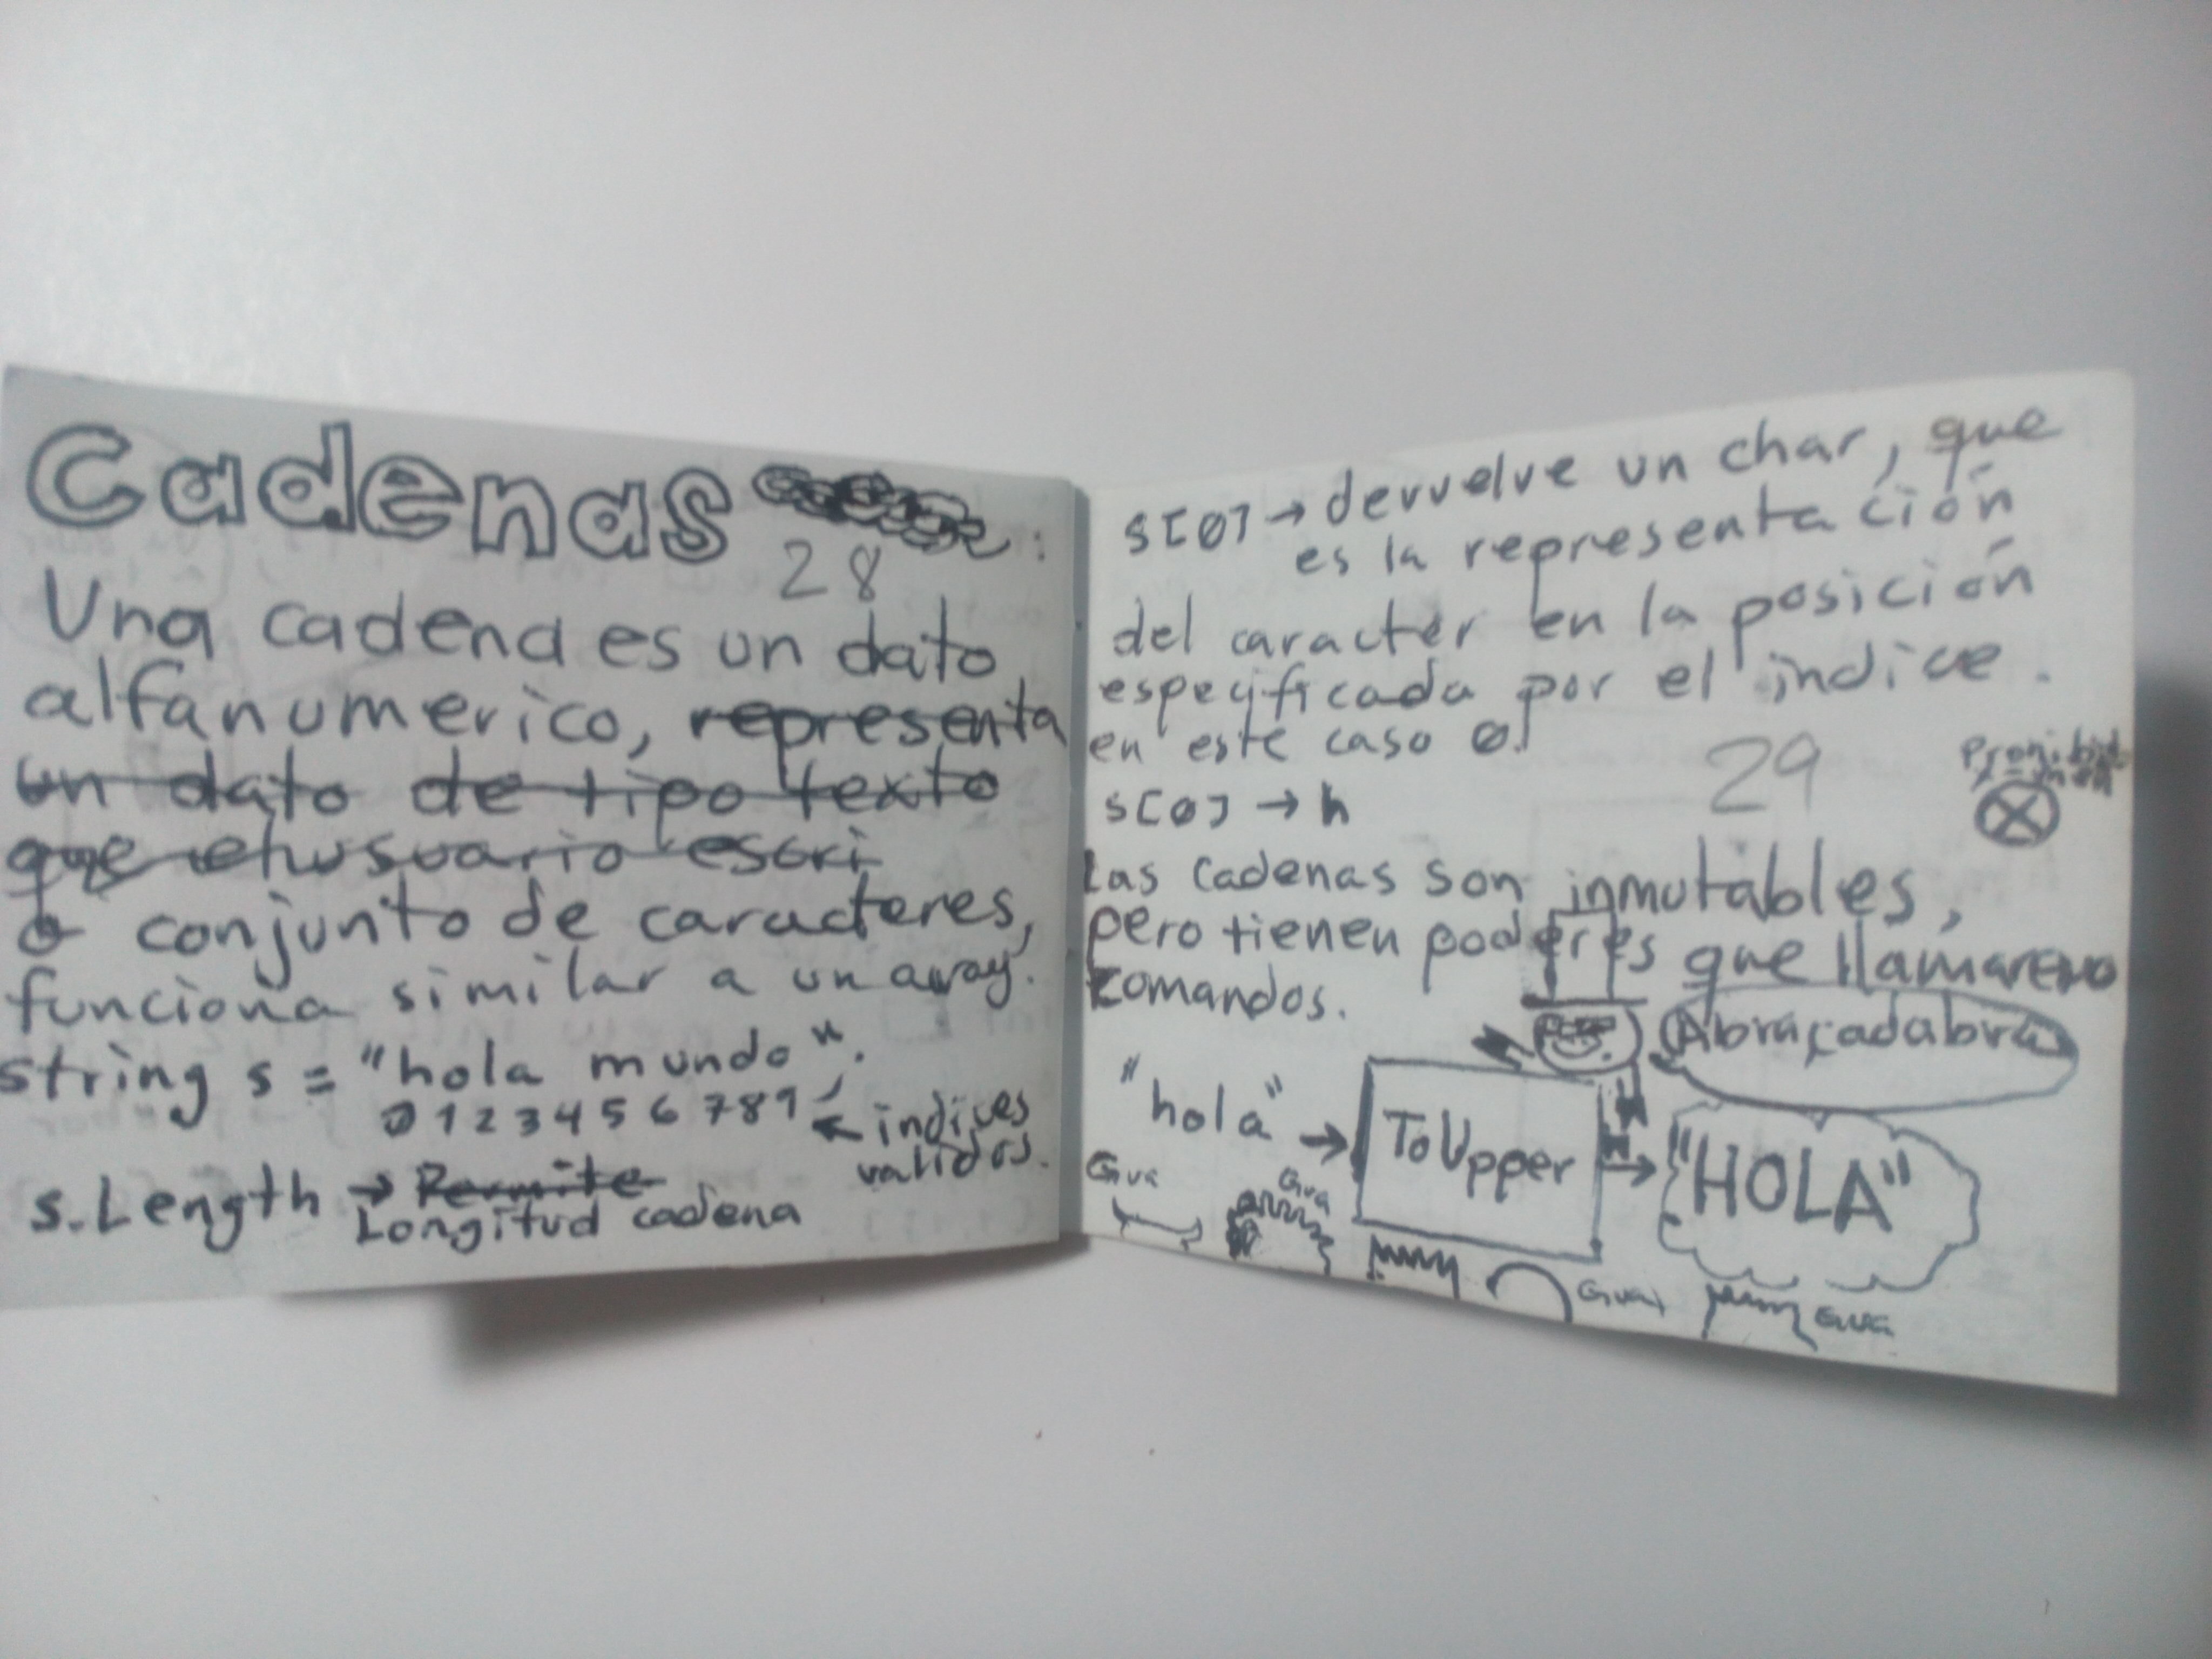 Cadenas :
28
Una cadena es un dato
alfanumerico, representa
un dato de tipo texto
que el usuario escri
o conjunto de caracteres,
funciona similar a un array.
string s = "hola mundo".
0 1 2 3 4 5 6 7 8 9 ← indices
validos.
s.Length → Permite
Longitud cadena
s[0] → devuelve un char, que
es la representación
del caracter en la posición
especificada por el indice.
en este caso 0.
29
Prohibido
s[0] → h
Las cadenas son inmutables,
pero tienen poderes que llamaremo
comandos.
Abracadabra
"hola" → ToUpper → "HOLA"
Gua
Gua
Gua
Gua